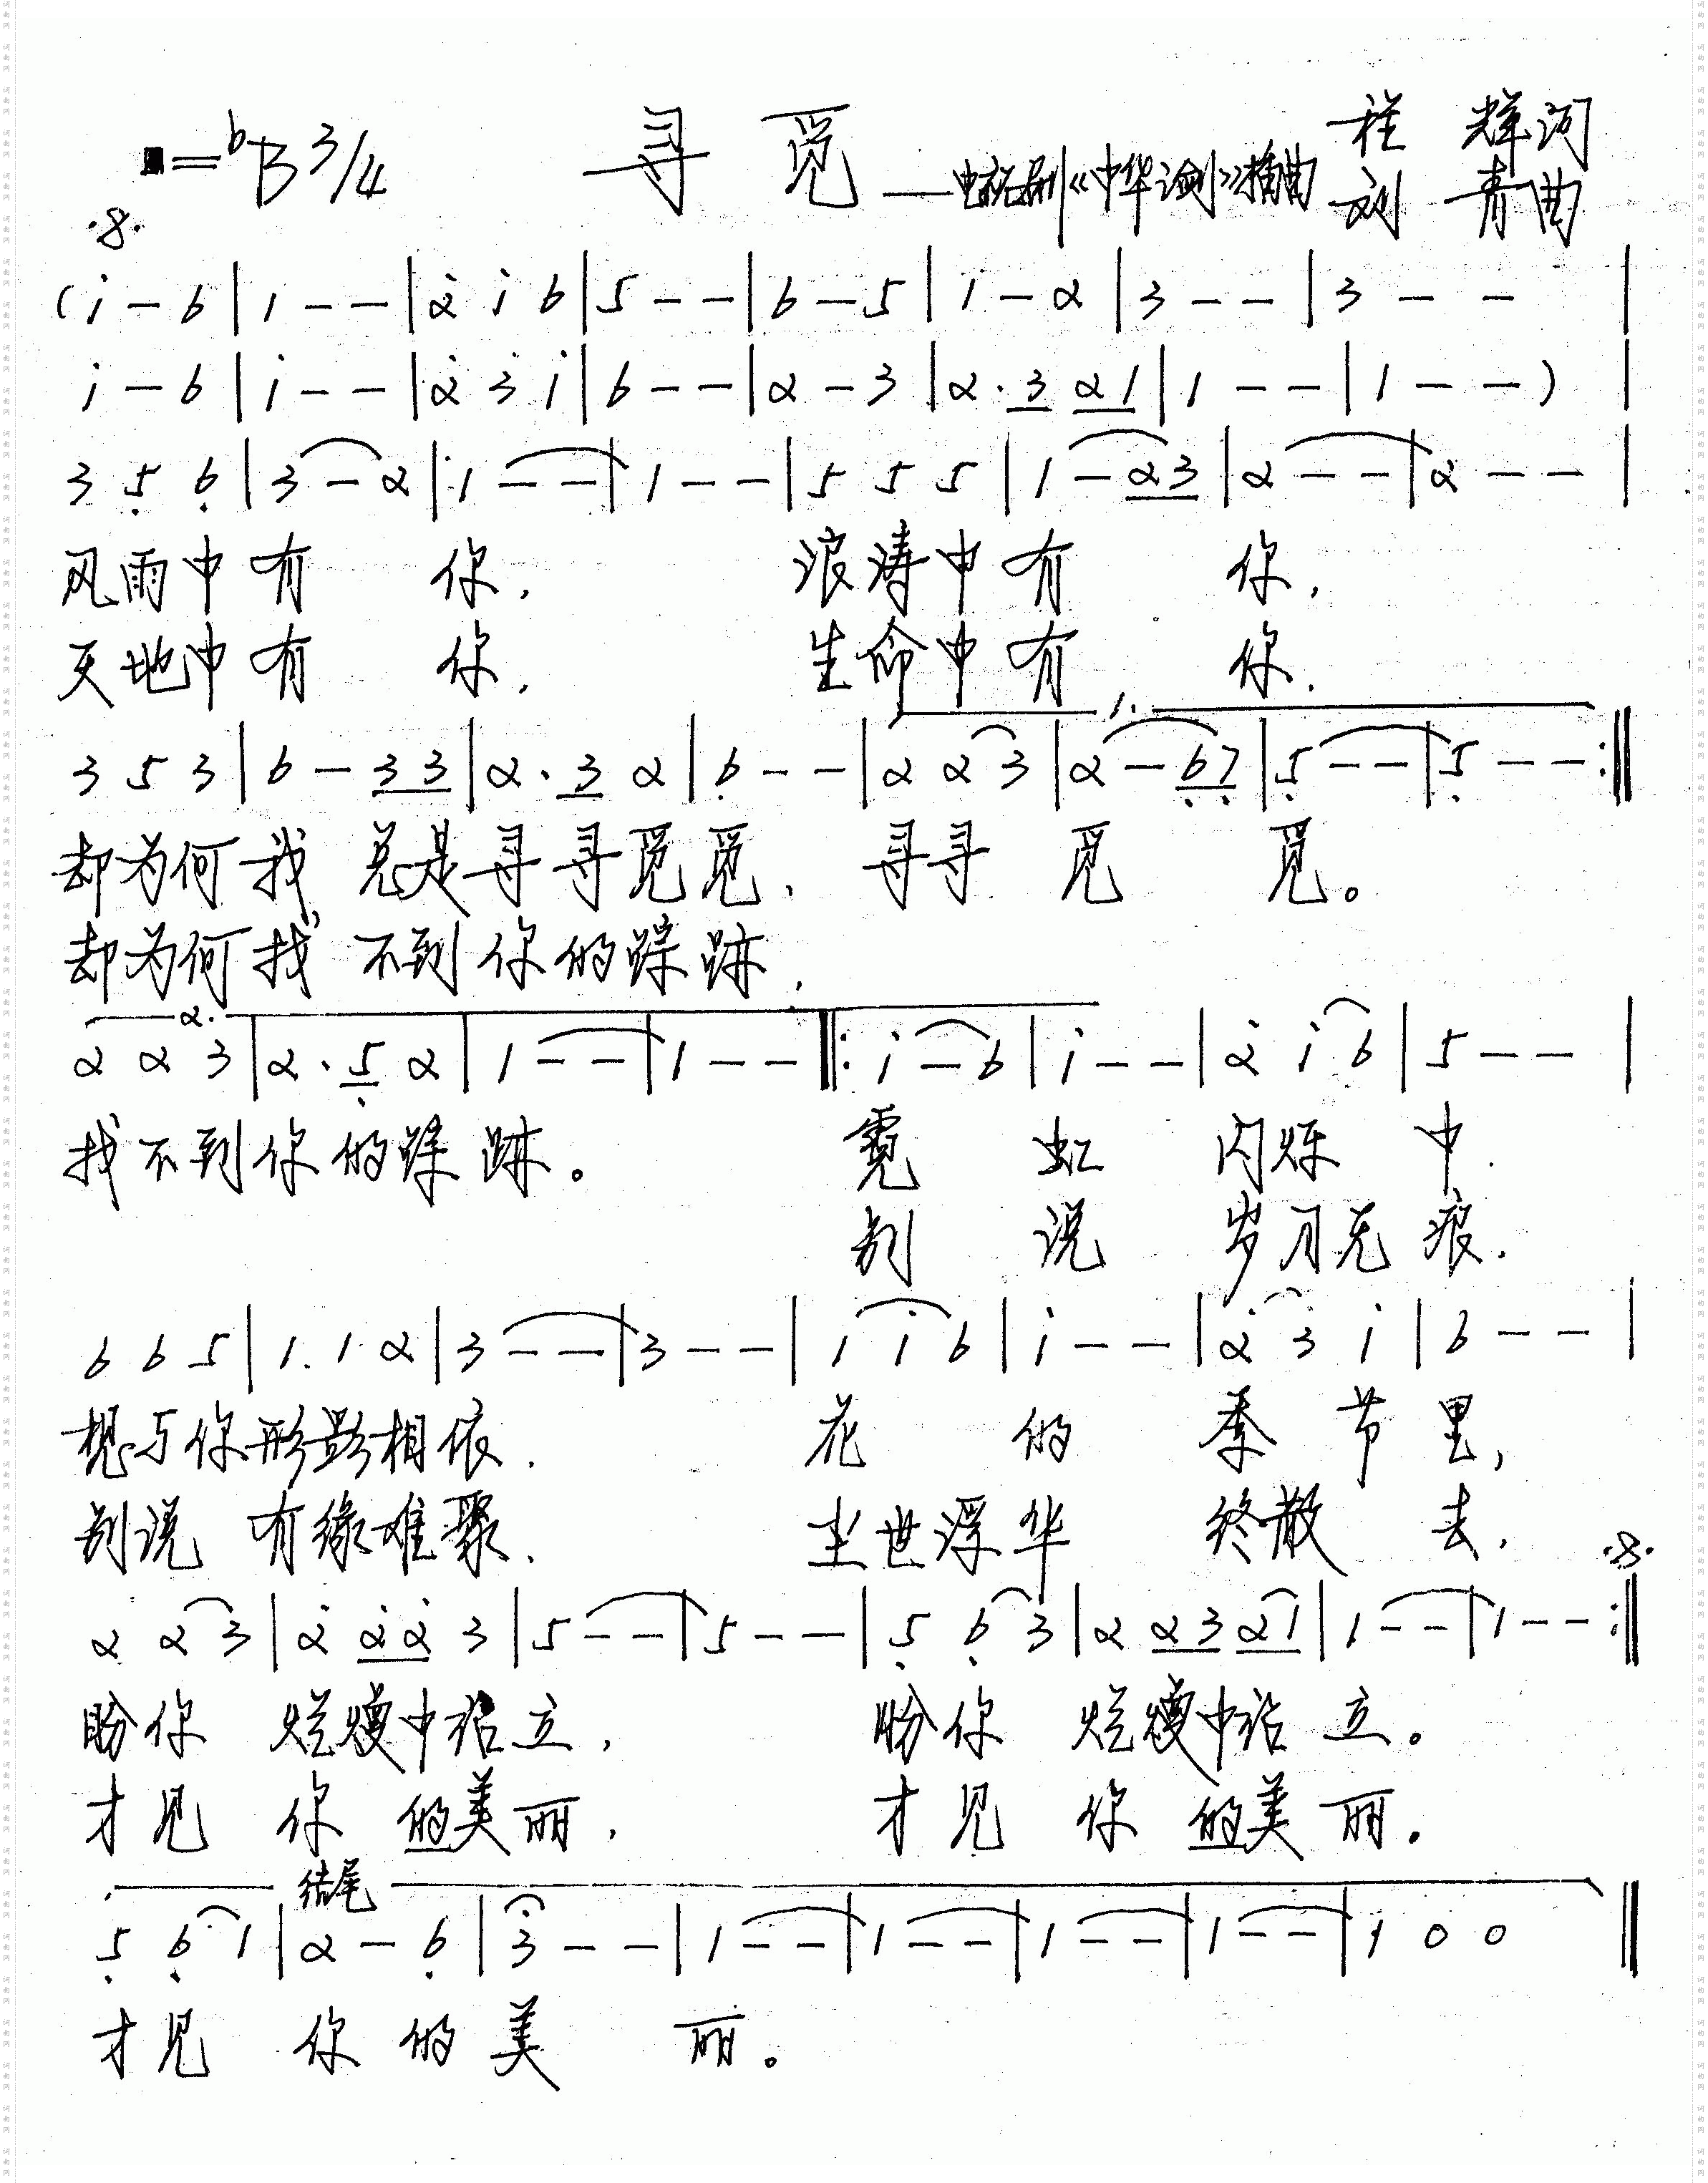 1=ᵇB 3/4 寻觅 ——电视剧《中华论剑》插曲 程辉词
刘青曲
(i - 6 | 1 - - | 2̇ i 6 | 5 - - | 6 - 5 | 1 - 2 | 3 - - | 3 - - |
i - 6 | i - - | 2̇ 3̇ i | 6 - - | 2 - 3 | 2 · 3 2 1 | 1 - - | 1 - - ) |
3 5̣ 6̣ | 3 - 2 | 1 - - | 1 - - | 5 5 5 | 1 - 2 3 | 2 - - | 2 - - |
风雨中有 你, 浪涛中有 你,
天地中有 你, 生命中有 你,
1.
3 5 3 | 6 - 3 3 | 2 · 3 2 | 6̣ - - | 2 2 3 | 2 - 6̣ 7̣ | 5̣ - - | 5̣ - - :‖
却为何我 总是寻寻觅觅, 寻寻 觅 觅。
却为何找 不到你的踪跡,
2.
2 2 3 | 2 · 5̣ 2 | 1 - - | 1 - - ‖: i - 6 | i - - | 2̇ i 6 | 5 - - |
找不到你的踪跡。 霓 虹 闪烁 中
别 说 岁月无 痕.
6 6 5 | 1. 1 2 | 3 - - | 3 - - | 1 i 6 | i - - | 2̇ 3̇ i | 6 - - |
想与你形影相依, 花 的 季 节 里,
别说 有缘难聚, 尘世浮华 终散 去,
2 2 3 | 2̇ 2̇ 2̇ 3 | 5 - - | 5 - - | 5̣ 6̣ 3 | 2 2 3 2 1 | 1 - - | 1 - - :‖
盼你 烂熳中站立, 盼你 烂熳中站 立。
才见 你 的美丽, 才见 你 的美丽。
结尾
5̣ 6̣ 1 | 2 - 6̣ | 3 - - | 1 - - | 1 - - | 1 - - | 1 - - | 1 0 0 ‖
才见 你 的 美 丽。